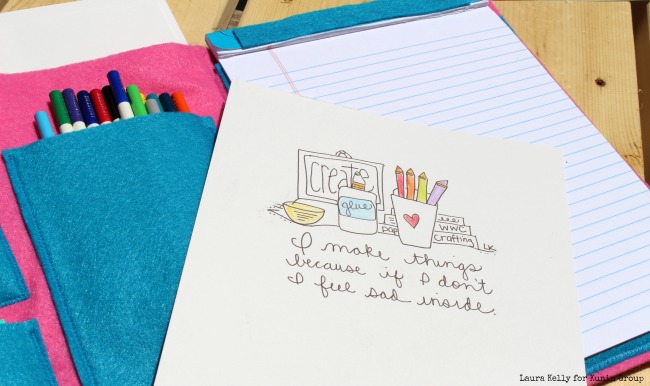 create
glue
pap
WWC
crafting
LK
I make things
because if I don't
I feel sad inside.
Laura Kelly for Kunin Group